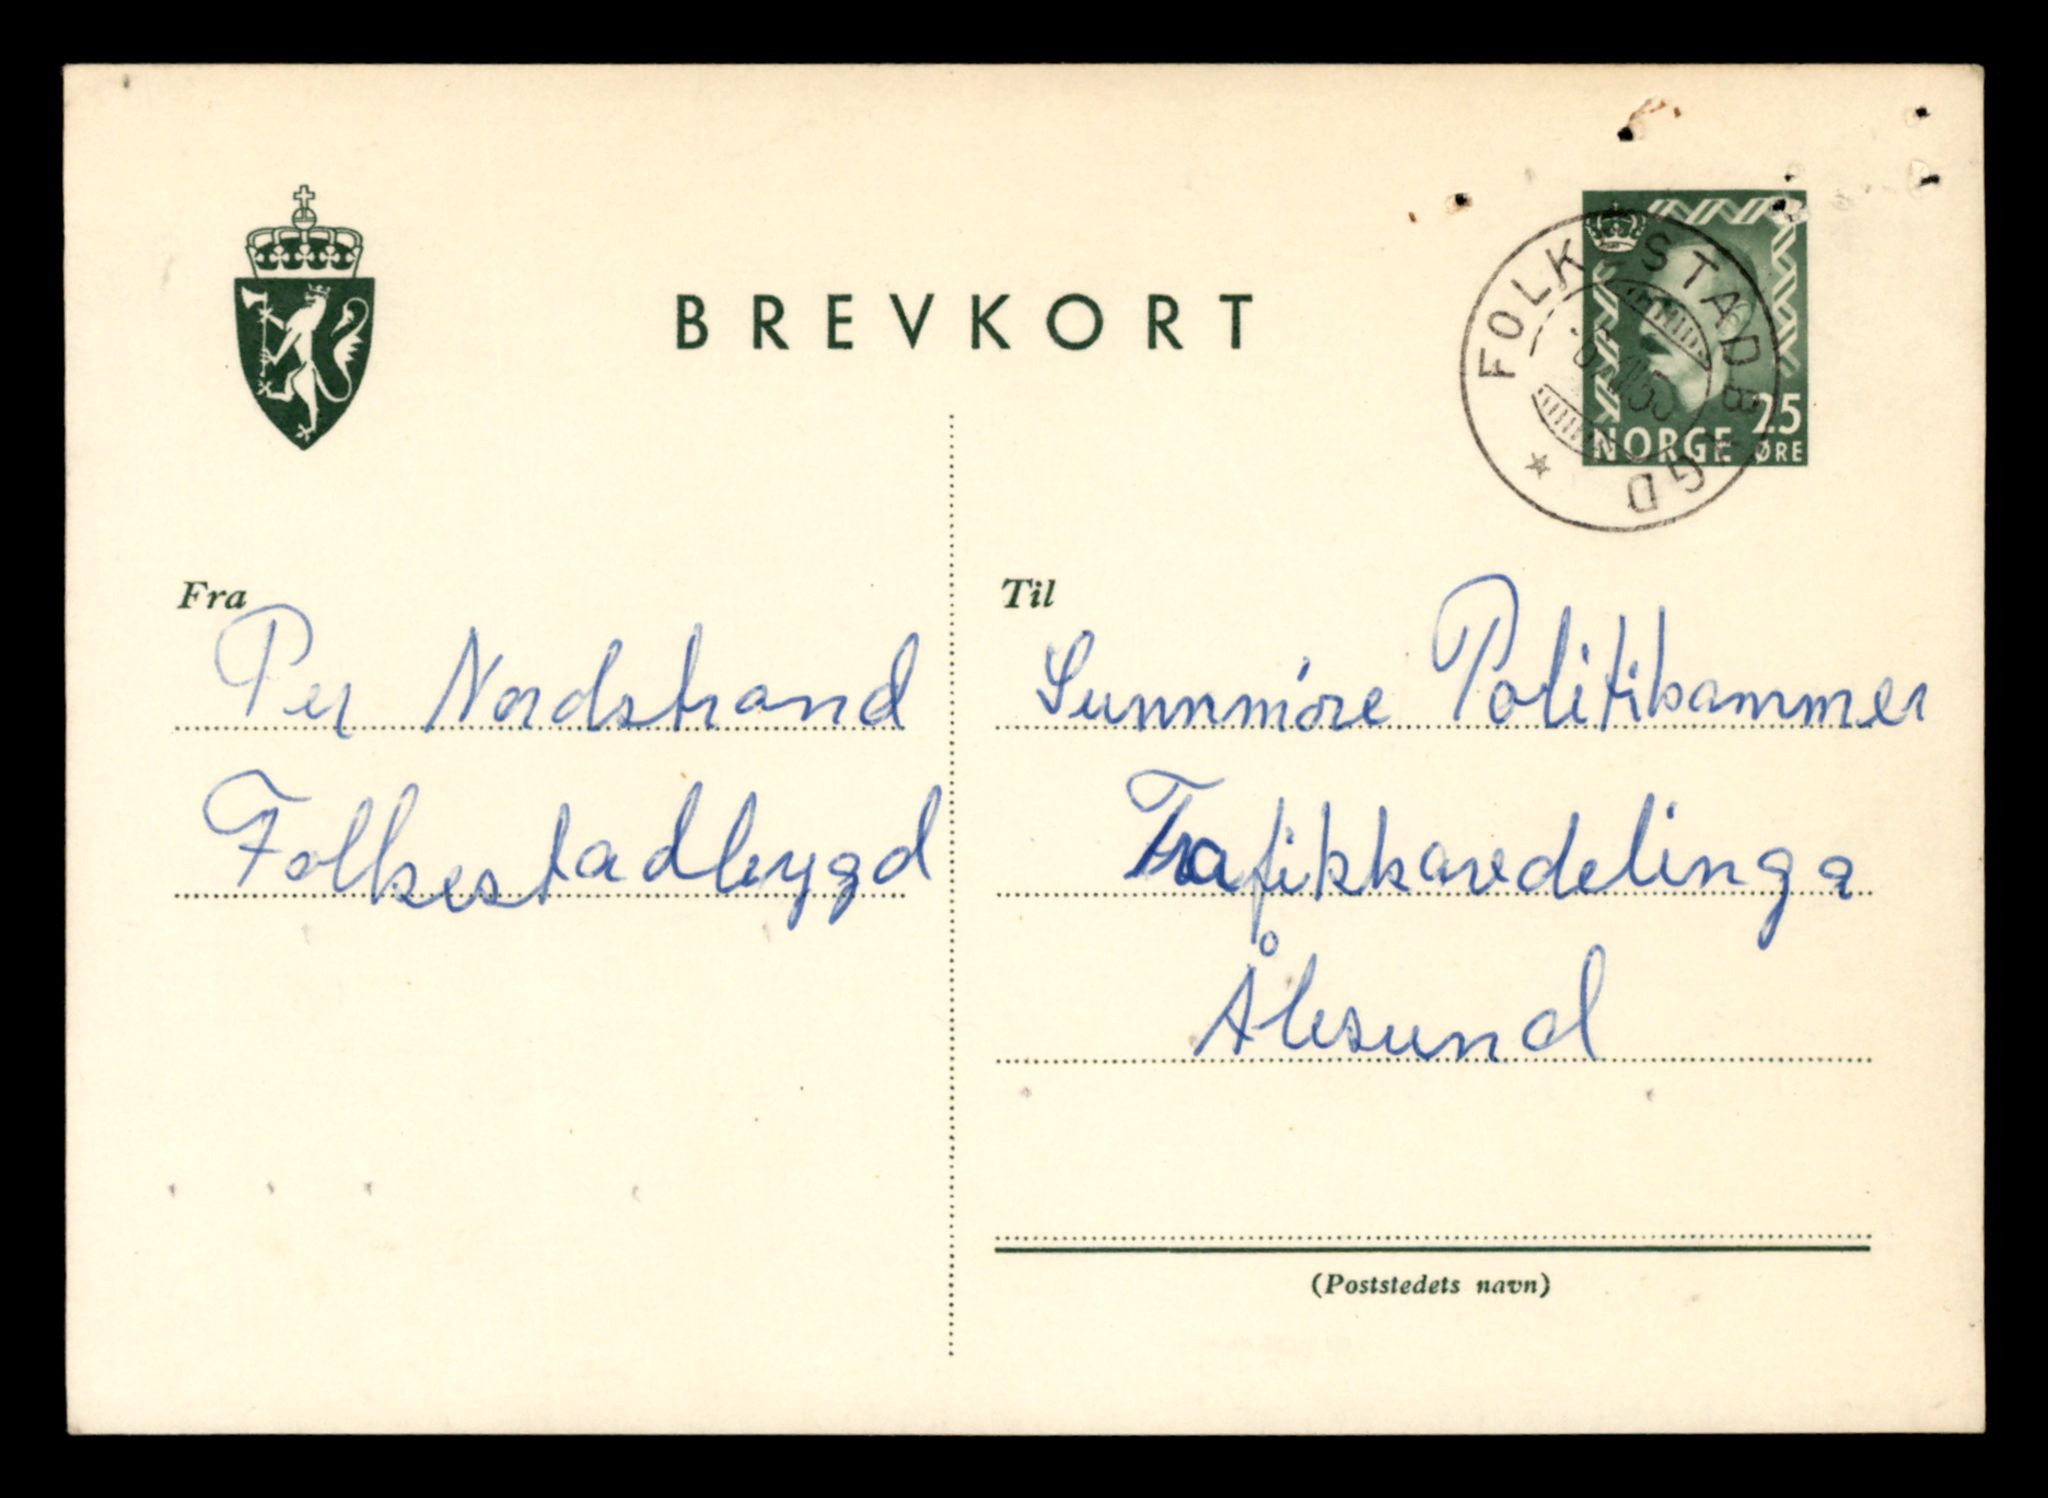 BREVKORT
FOLKESTADBYGD
25
NORGE ØRE
Fra
Per Nordstrand
Folkestadbygd
Til
Sunnmöre Politikammer
Trafikkavdelinga
Ålesund
(Poststedets navn)